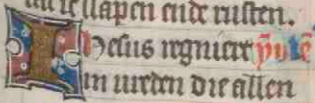 ic slapen ende rusten.
Ihesus regniert
in vreden die allen